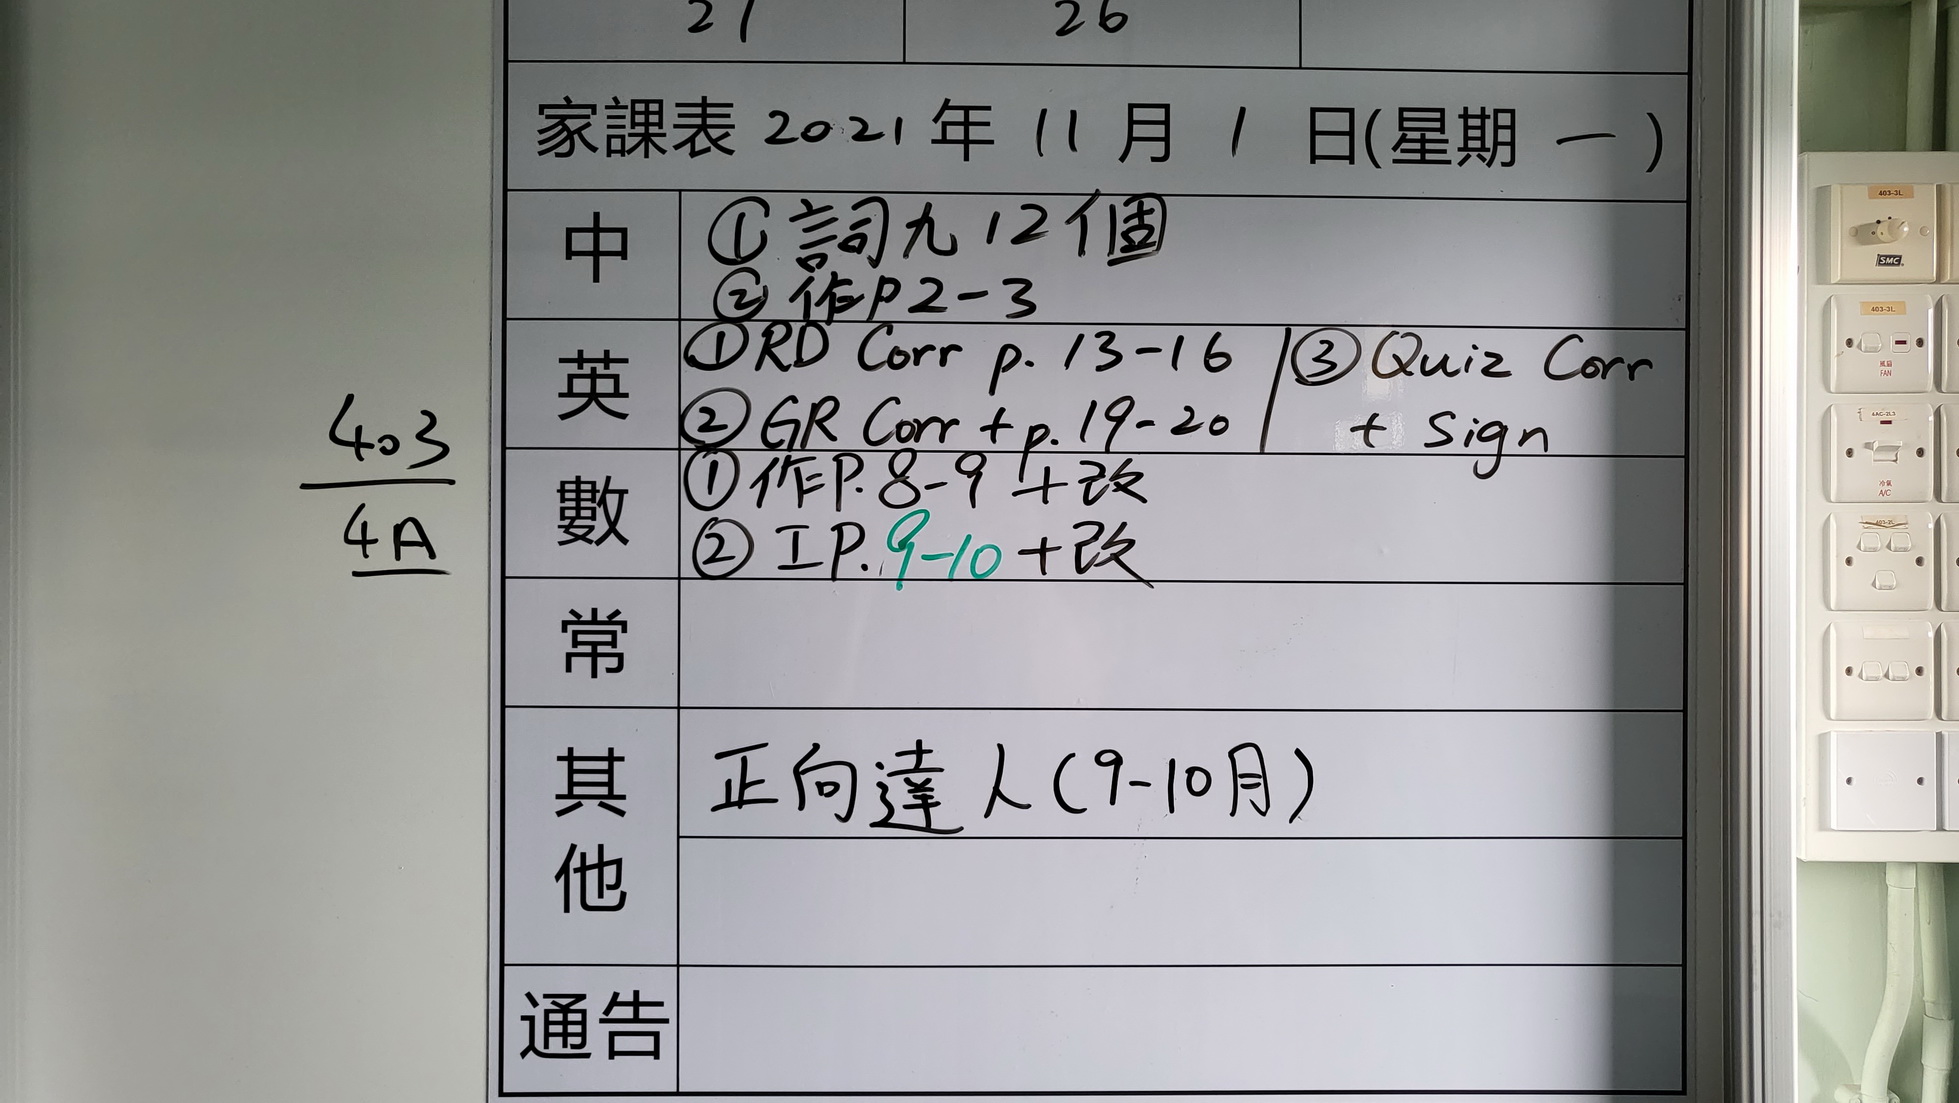 27 26
家課表 2021 年 11 月 1 日(星期 一 )
中
① 詞九 12個
② 作P2-3
英
① RD Corr p. 13-16
② GR Corr + p. 19-20
③ Quiz Corr
+ Sign
數
① 作P. 8-9 + 改
② I P. 9-10 + 改
常
其他
正向達人(9-10月)
通告
403
4A
403-3L
SMC
403-3L
風扇
FAN
冷氣
A/C